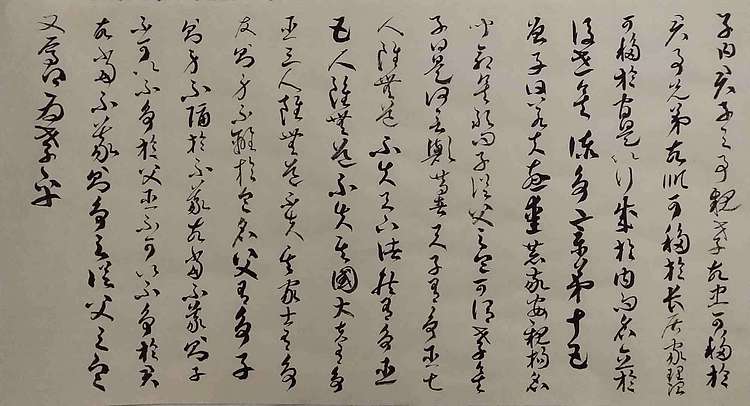 子曰君子之事親孝故忠可移於
君事兄弟故順可移於長居家理治
可移於官是以行成於內而名立於
後世矣諫爭章第十五
曾子曰若夫慈愛恭敬安親揚名
聞命矣敢問子從父之令可謂孝矣
子曰是何言與昔者天子有爭臣七
人雖無道不失天下諸侯有爭臣
五人雖無道不失其國大夫有爭
臣三人雖無道不失其家士有爭
友則身不離於令名父有爭子
則身不陷於不義故當不義則子
不可以不爭於父臣不可以不爭於君
故當不義則爭之從父之令
又焉得為孝乎